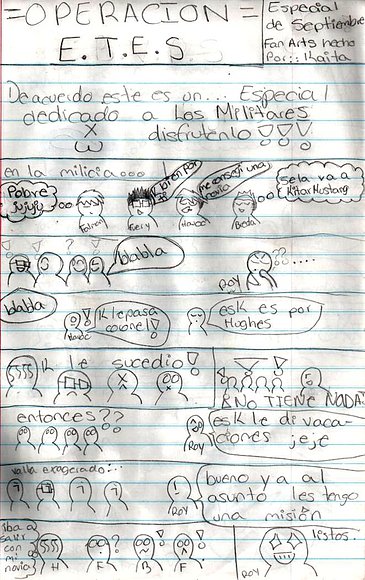 =OPERACION=
E.T.E.S
Especial
de Septiembre
Fan Arts hecho
Por:: Ikaita
De acuerdo este es un... Especial
dedicado a Los Militares
disfrutenlo
en la milicia...
Pobre
jujuju
me conseguí una
novia
se la va a
Kitar Mustang
Falman
Fuery
Havoc
Breda
blabla
Roy
??....
blabla
K le pasa
colonel!
Havoc
esk es por
Hughes
K le sucedio!
K NO TIENE NADA!
entonces??
Roy
esk le di vaca-
ciones jeje
valla exagerado...
Roy
bueno ya al
asunto les tengo
una misión
iba a
salir
con
mi
novia
H
F
B
F
Roy
listos.